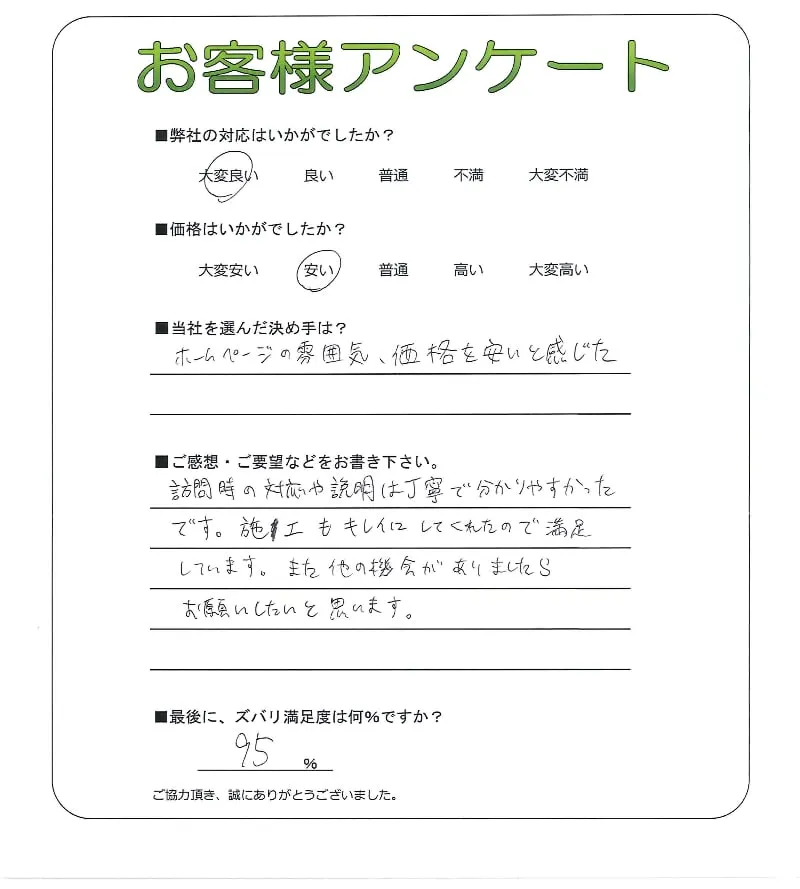 お客様アンケート
■弊社の対応はいかがでしたか？
大変良い 良い 普通 不満 大変不満
■価格はいかがでしたか？
大変安い 安い 普通 高い 大変高い
■当社を選んだ決め手は？
ホームページの雰囲気、価格を安いと感じた
■ご感想・ご要望などをお書き下さい。
訪問時の対応や説明は丁寧で分かりやすかった
です。施工もキレイにしてくれたので満足
しています。また他の機会がありましたら
お願いしたいと思います。
■最後に、ズバリ満足度は何%ですか？
95 %
ご協力頂き、誠にありがとうございました。